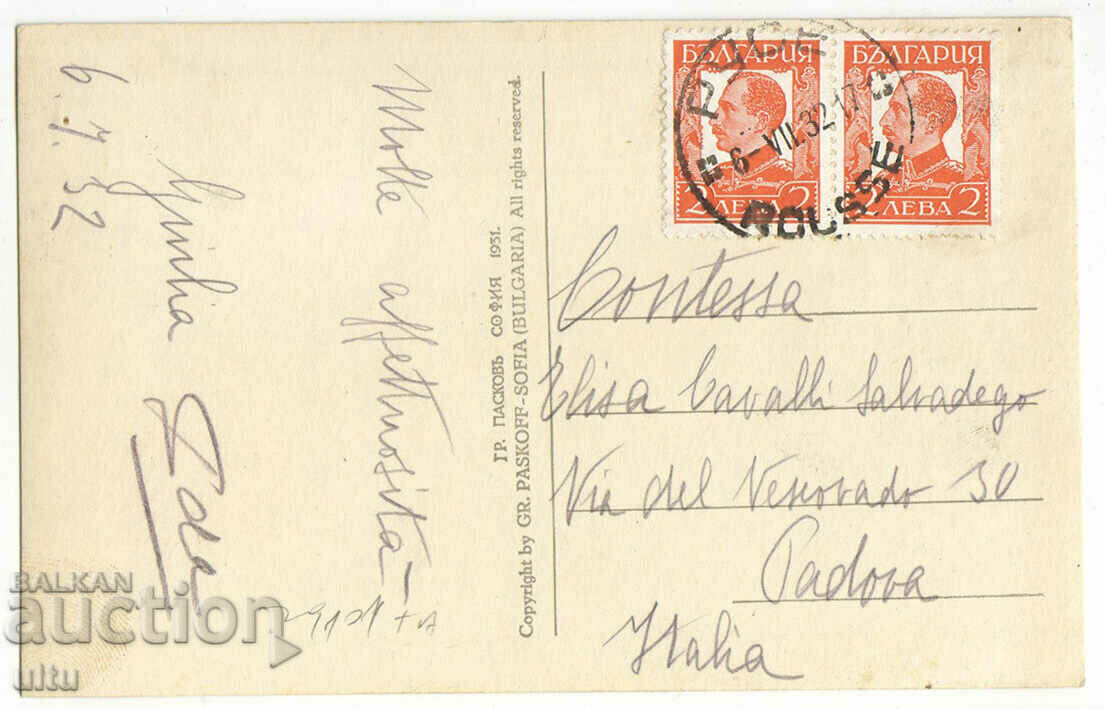 6.7.32
Molte affettuosità –
Giulia
Ida
ГР. ПАСКОВЪ СОФИЯ 1931.
Copyright by GR. PASKOFF-SOFIA (BULGARIA) All rights reserved.
БЪЛГАРИЯ
2 ЛЕВА 2
БЪЛГАРИЯ
2 ЛЕВА 2
РУСЕ
6-VII.32.17
ROUSSE
Contessa
Elisa Cavalli Salvadego
Via del Vescovado 30
Padova
Italia
BALKAN
auction
ultu